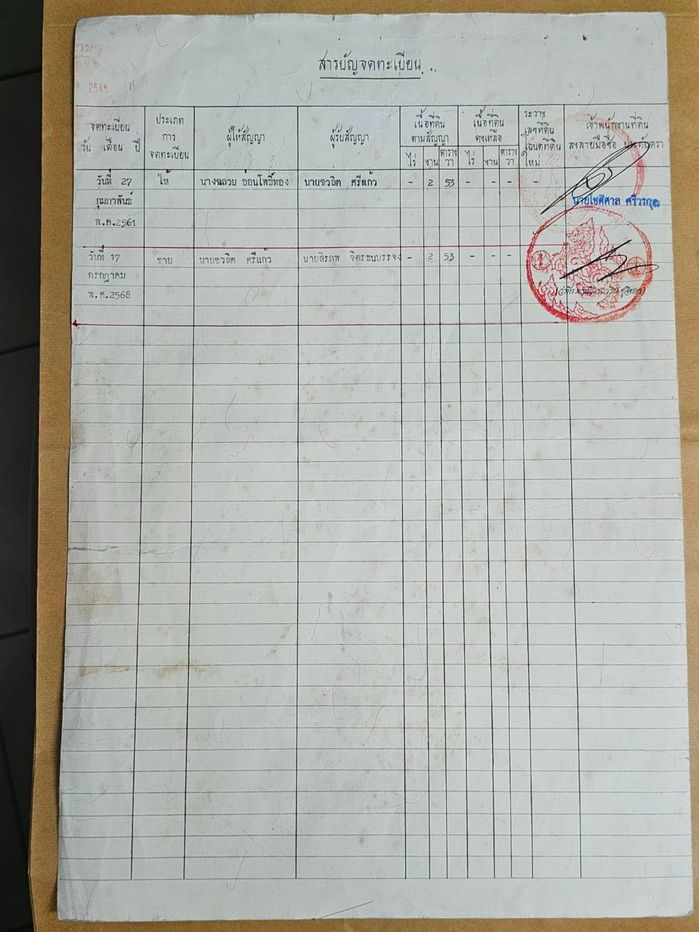 2549
สารบัญจดทะเบียน
จดทะเบียน
วัน เดือน ปี
ประเภท
การ
จดทะเบียน
ผู้ให้สัญญา
ผู้รับสัญญา
เนื้อที่ดิน
ตามสัญญา
ไร่ งาน ตาราง
วา
เนื้อที่ดิน
คงเหลือ
ไร่ งาน ตาราง
วา
ระวาง
เลขที่ดิน
โฉนดที่ดิน
ใหม่
เจ้าพนักงานที่ดิน
ลงลายมือชื่อ ประทับตรา
วันที่ 27 ให้ นางฉลวย อ่อนโพธิ์ทอง นายชวลิต ศรีแก้ว - 2 53 - - - -
กุมภาพันธ์
พ.ศ.2561
นายโชติศาล
วันที่ 17 ขาย นายชวลิต ศรีแก้ว นายสิรภพ - 2 53 - - - -
กรกฎาคม
พ.ศ.2568